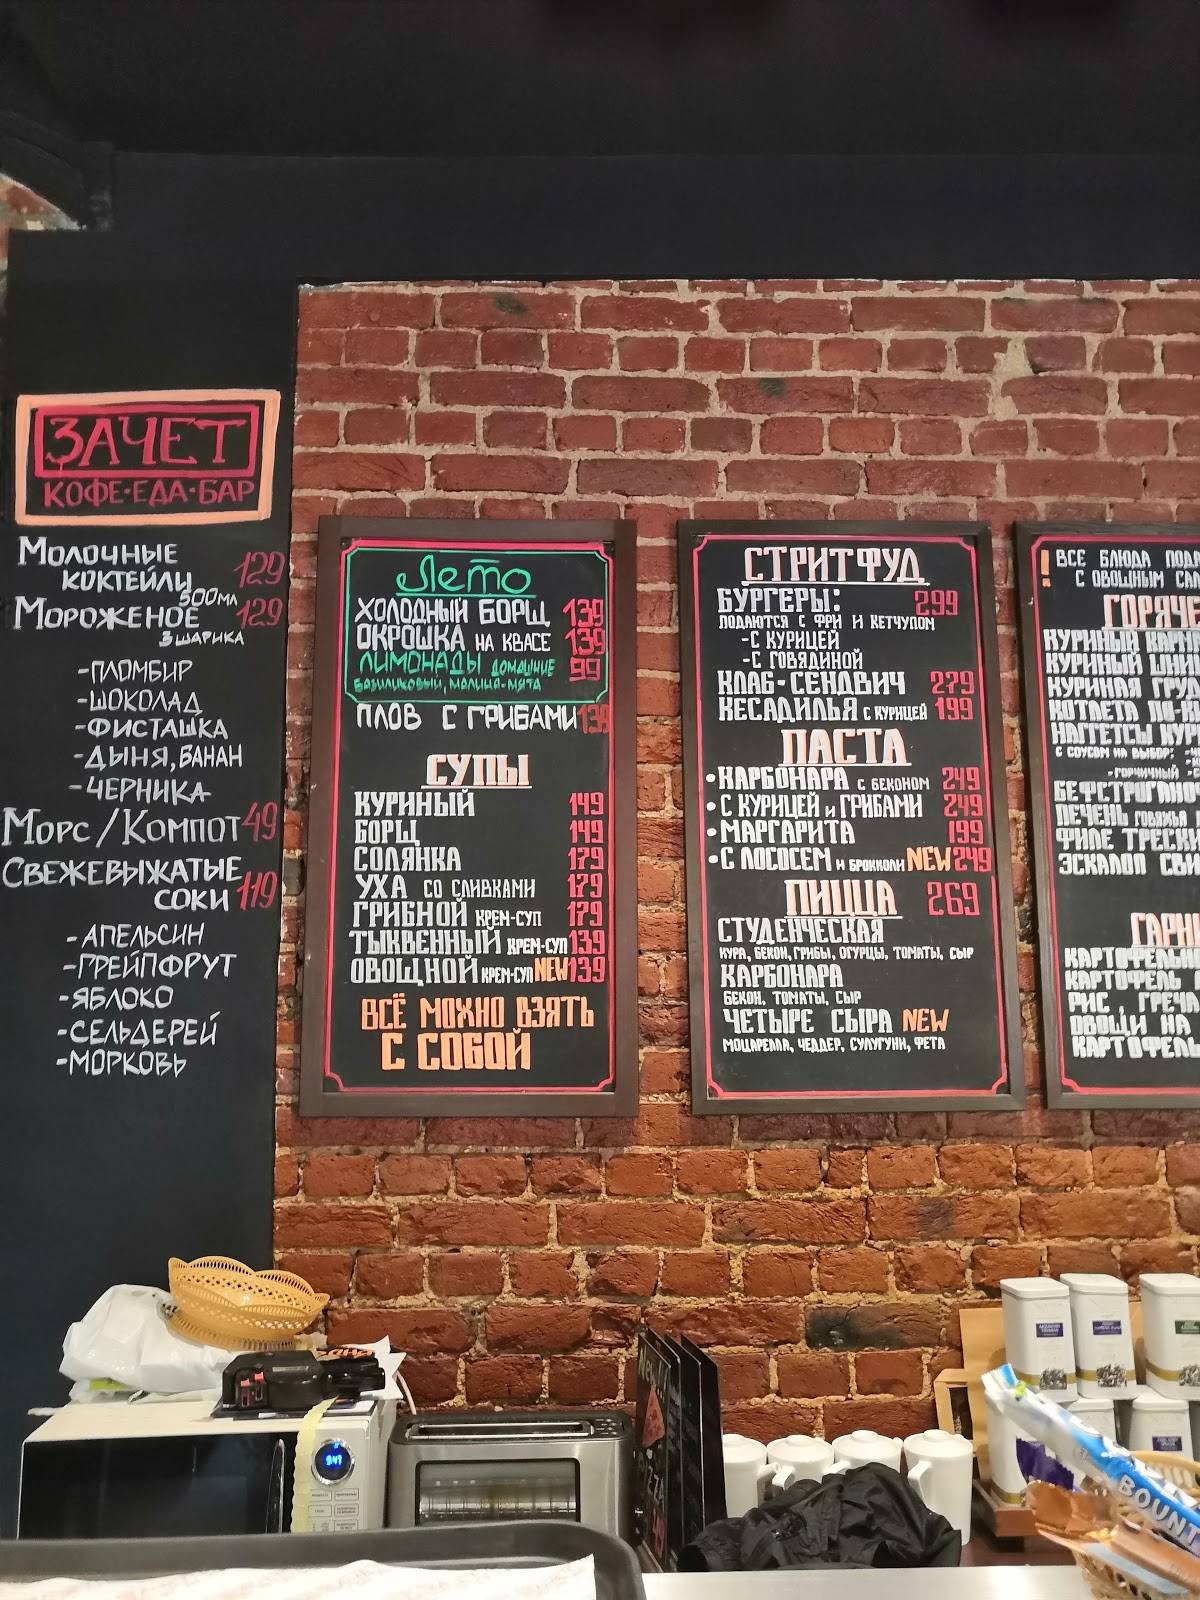 ЗАЧЕТ
КОФЕ·ЕДА·БАР
МОЛОЧНЫЕ
КОКТЕЙЛИ 129
500МЛ
МОРОЖЕНОЕ 129
3 ШАРИКА
-ПЛОМБИР
-ШОКОЛАД
-ФИСТАШКА
-ДЫНЯ, БАНАН
-ЧЕРНИКА
МОРС/КОМПОТ 49
СВЕЖЕВЫЖАТЫЕ
СОКИ 119
-АПЕЛЬСИН
-ГРЕЙПФРУТ
-ЯБЛОКО
-СЕЛЬДЕРЕЙ
-МОРКОВЬ
Лето
ХОЛОДНЫЙ БОРЩ 139
ОКРОШКА НА КВАСЕ 139
ЛИМОНАДЫ ДОМАШНИЕ 99
БАЗИЛИКОВЫЙ, МАЛИНА-МЯТА
ПЛОВ С ГРИБАМИ 139
СУПЫ
КУРИНЫЙ 149
БОРЩ 149
СОЛЯНКА 179
УХА СО СЛИВКАМИ 179
ГРИБНОЙ КРЕМ-СУП 179
ТЫКВЕННЫЙ КРЕМ-СУП 139
ОВОЩНОЙ КРЕМ-СУП NEW 139
ВСЁ МОЖНО ВЗЯТЬ
С СОБОЙ
СТРИТФУД
БУРГЕРЫ: 299
ПОДАЮТСЯ С ФРИ И КЕТЧУПОМ
-С КУРИЦЕЙ
-С ГОВЯДИНОЙ
КЛАБ-СЕНДВИЧ 279
КЕСАДИЛЬЯ С КУРИЦЕЙ 199
ПАСТА
•КАРБОНАРА С БЕКОНОМ 249
•С КУРИЦЕЙ И ГРИБАМИ 249
•МАРГАРИТА 199
•С ЛОСОСЕМ И БРОККОЛИ NEW 249
ПИЦЦА 269
СТУДЕНЧЕСКАЯ
КУРА, БЕКОН, ГРИБЫ, ОГУРЦЫ, ТОМАТЫ, СЫР
КАРБОНАРА
БЕКОН, ТОМАТЫ, СЫР
ЧЕТЫРЕ СЫРА NEW
МОЦАРЕЛЛА, ЧЕДДЕР, СУЛУГУНИ, ФЕТА
! ВСЕ БЛЮДА ПОДА
С ОВОЩНЫМ САЛ
ГОРЯЧЕ
КУРИНЫЙ КАРН
КУРИНЫЙ ШНИ
КУРИНАЯ ГРУД
КОТЛЕТА ПО-К
НАГГЕТСЫ КУР
С СОУСОМ НА ВЫБОР:
-ГОРЧИЧНЫЙ
БЕФСТРОГАНО
ПЕЧЕНЬ ГОВЯЖЬЯ
ФИЛЕ ТРЕСКИ
ЭСКАЛОП СВИ
ГАРНИ
КАРТОФЕЛЬНО
КАРТОФЕЛЬ
РИС, ГРЕЧА
ОВОЩИ НА
КАРТОФЕЛЬ
9:47
BOUNT